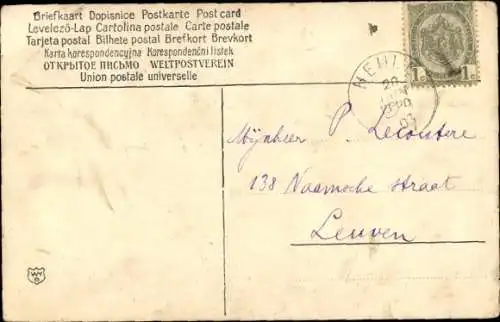 Briefkaart Dopisnice Postkarte Post card
Levelező-Lap Cartolina postale Carte postale
Tarjeta postal Bilhete postal Brefkort Brevkort
Karta korespondencyjna Korespondenční listek
ОТКРЫТОЕ ПИСЬМО WELTPOSTVEREIN
Union postale universelle
1c 1c
20
03
Mijnheer P. Lecoutere
138 Naamsche straat
Leuven